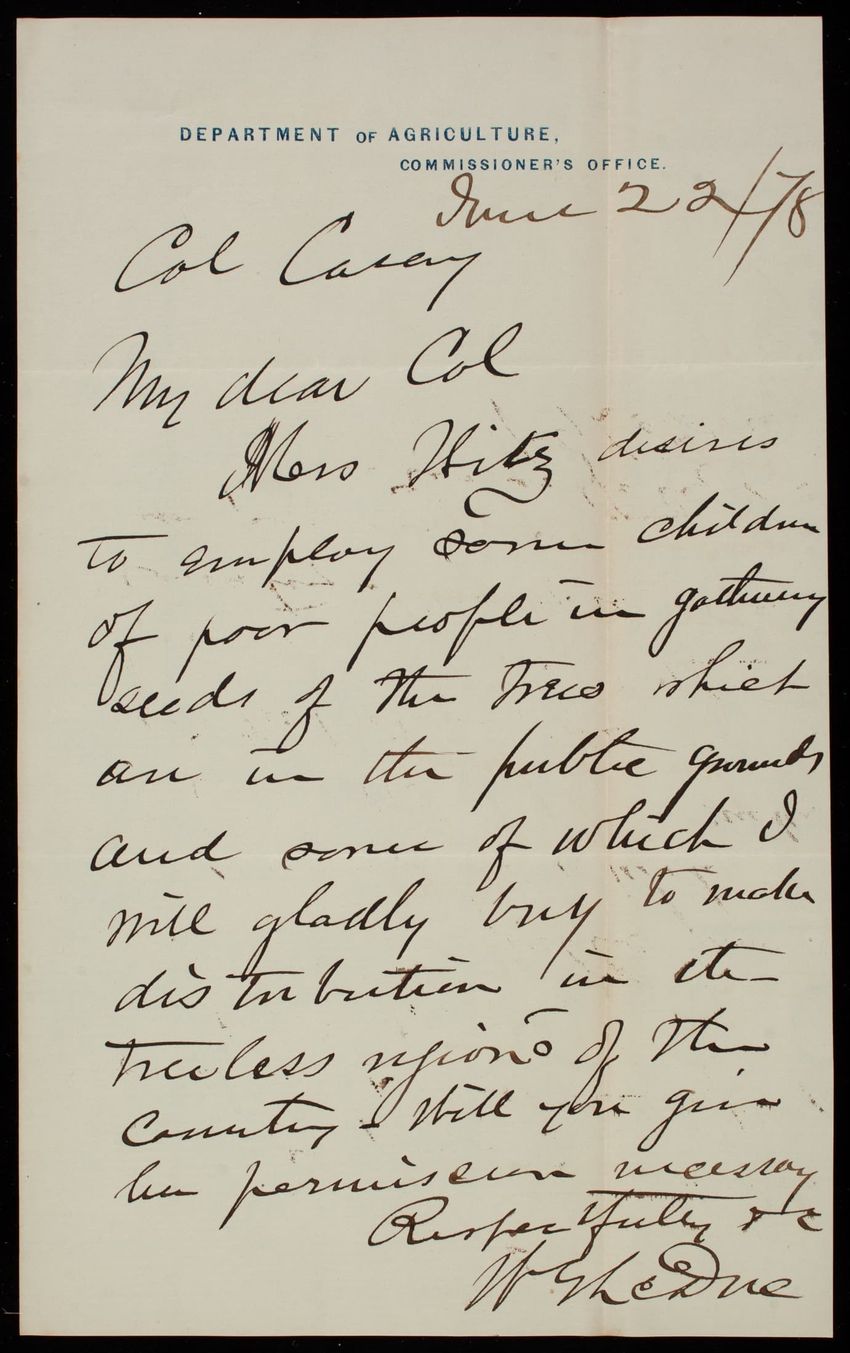 DEPARTMENT OF AGRICULTURE,
COMMISSIONER'S OFFICE.
June 22/78
Col Casey
My dear Col
Mrs Hitz desires
to employ some children
of poor people in gathering
seeds of the trees which
are in the public grounds
and some of which I
will gladly buy to make
distribution in the
treeless regions of the
country - Will you give
her permission necessary
Respectfully &c
Wm G LeDuc